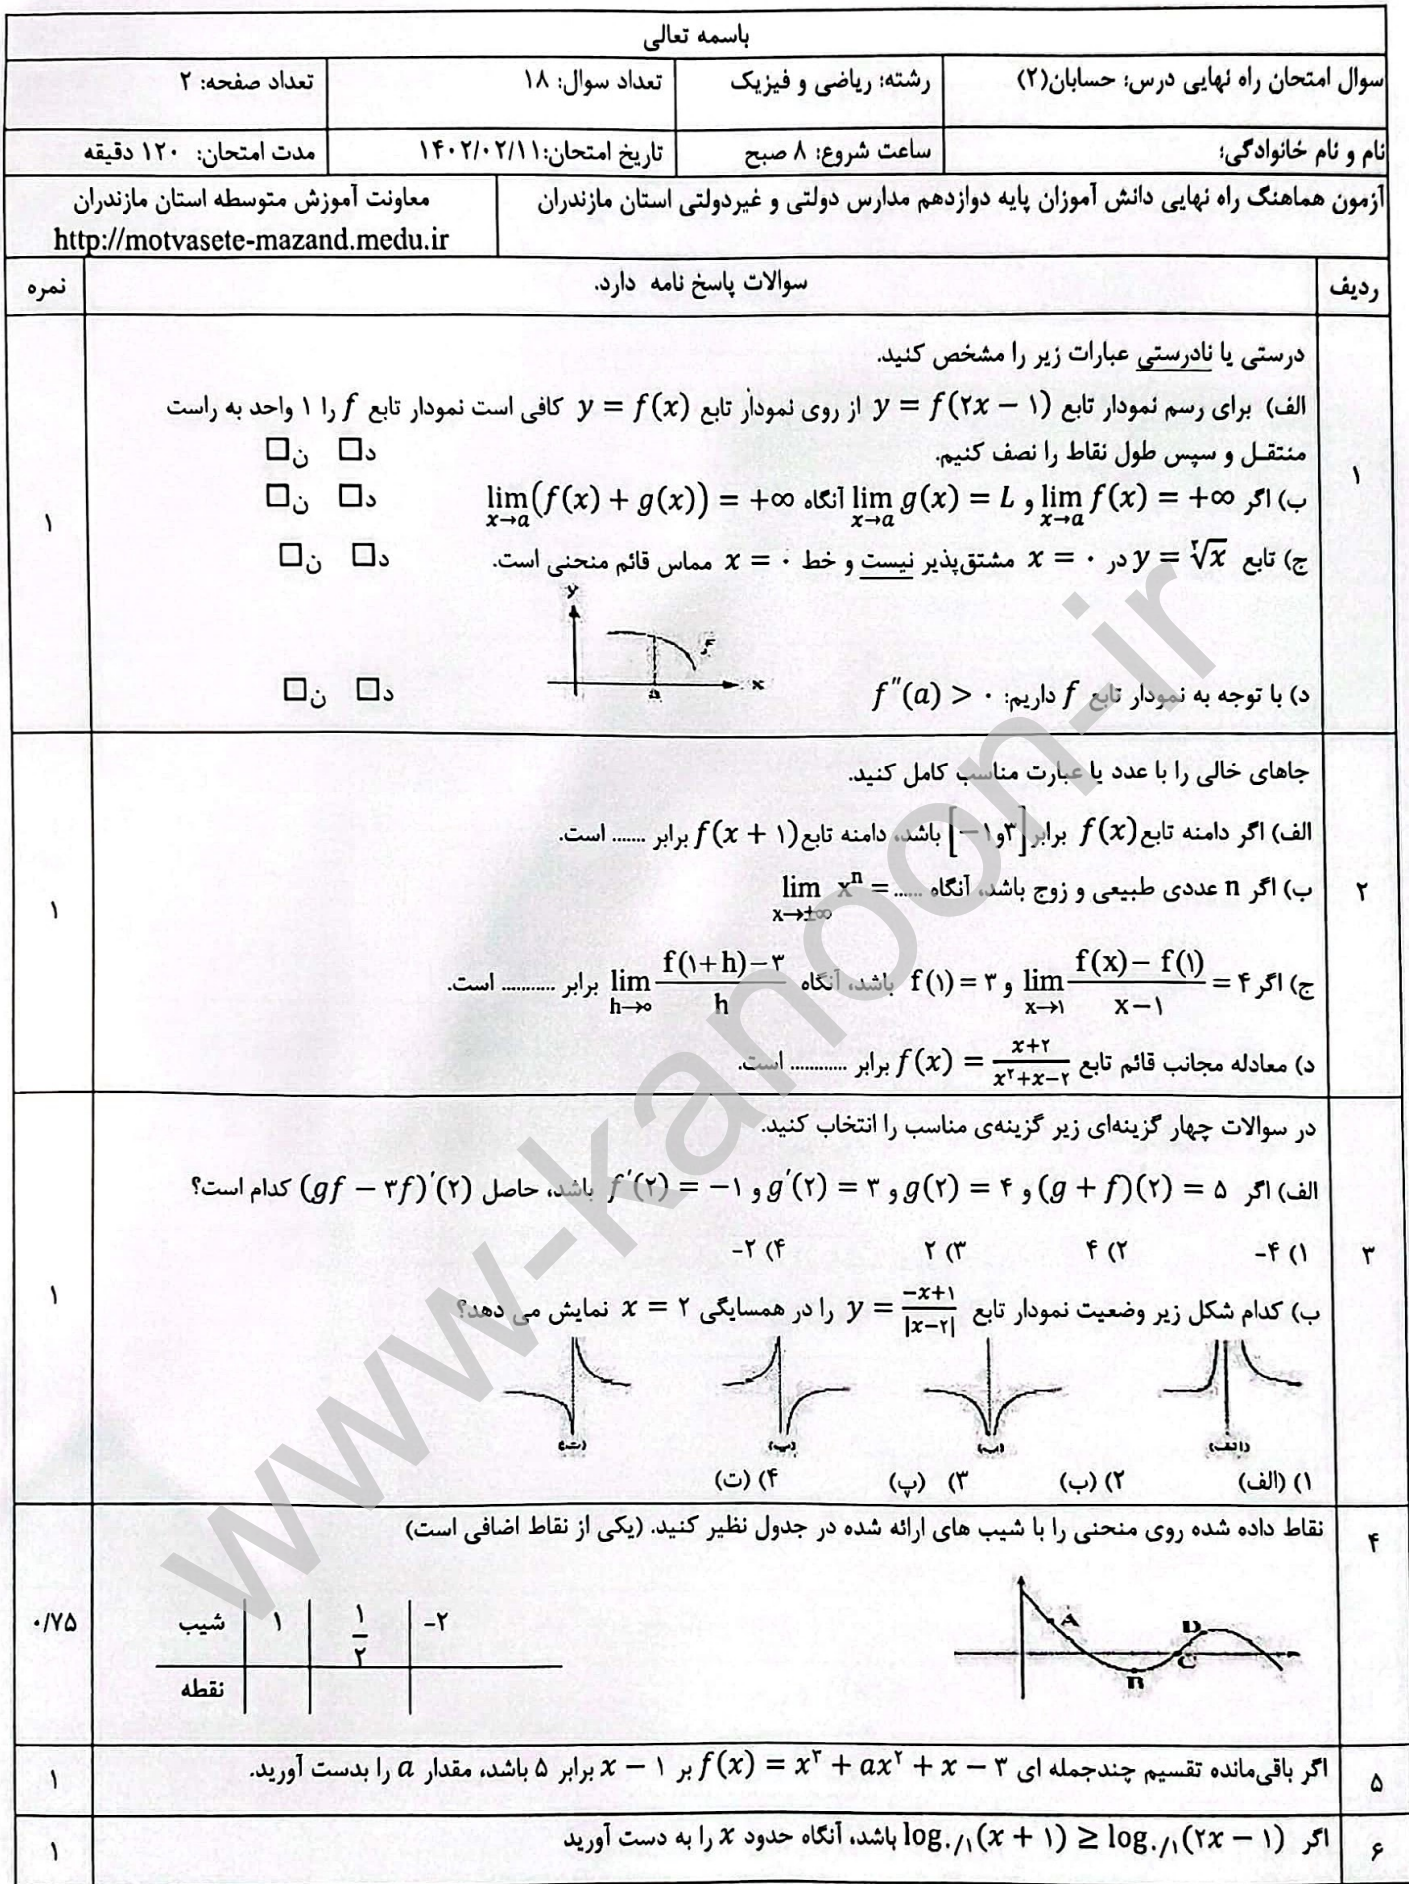 باسمه تعالی
سوال امتحان راه نهایی درس: حسابان(۲)
رشته: ریاضی و فیزیک
تعداد سوال: ۱۸
تعداد صفحه: ۲
نام و نام خانوادگی:
ساعت شروع: ۸ صبح
تاریخ امتحان:۱۴۰۲/۰۲/۱۱
مدت امتحان: ۱۲۰ دقیقه
آزمون هماهنگ راه نهایی دانش آموزان پایه دوازدهم مدارس دولتی و غیردولتی استان مازندران
معاونت آموزش متوسطه استان مازندران
http://motvasete-mazand.medu.ir
ردیف
سوالات پاسخ نامه دارد.
نمره
۱
درستی یا نادرستی عبارات زیر را مشخص کنید.
الف) برای رسم نمودار تابع y = f(۲x − ۱) از روی نمودار تابع y = f(x) کافی است نمودار تابع f را ۱ واحد به راست
منتقل و سپس طول نقاط را نصف کنیم. د□ ن□
ب) اگر lim x→a f(x) = +∞ و lim x→a g(x) = L آنگاه lim x→a (f(x) + g(x)) = +∞ د□ ن□
ج) تابع y = ∛x در x = ۰ مشتق‌پذیر نیست و خط x = ۰ مماس قائم منحنی است. د□ ن□
y
f
a
x
د) با توجه به نمودار تابع f داریم: f″(a) > ۰ د□ ن□
۱
۲
جاهای خالی را با عدد یا عبارت مناسب کامل کنید.
الف) اگر دامنه تابع f(x) برابر [−۱و۳] باشد، دامنه تابع f(x + ۱) برابر ....... است.
ب) اگر n عددی طبیعی و زوج باشد، آنگاه lim x→±∞ xⁿ = ......
ج) اگر lim x→۱ (f(x) − f(۱))/(x − ۱) = ۴ و f(۱) = ۳ باشد، آنگاه lim h→∞ (f(۱+h) − ۳)/h برابر ........... است.
د) معادله مجانب قائم تابع f(x) = (x+۲)/(x²+x−۲) برابر ............ است.
۱
۳
در سوالات چهار گزینه‌ای زیر گزینه‌ی مناسب را انتخاب کنید.
الف) اگر (g + f)(۲) = ۵ و g(۲) = ۴ و g′(۲) = ۳ و f′(۲) = −۱ باشد، حاصل (gf − ۳f)′(۲) کدام است؟
۱) ۴- ۲) ۴ ۳) ۲ ۴) ۲-
ب) کدام شکل زیر وضعیت نمودار تابع y = (−x+۱)/|x−۲| را در همسایگی x = ۲ نمایش می دهد؟
(الف) (ب) (پ) (ت)
۱) (الف) ۲) (ب) ۳) (پ) ۴) (ت)
۱
۴
نقاط داده شده روی منحنی را با شیب های ارائه شده در جدول نظیر کنید. (یکی از نقاط اضافی است)
A
B
C
D
شیب ۱ ۱/۲ −۲
نقطه
۰/۷۵
۵
اگر باقی‌مانده تقسیم چندجمله ای f(x) = x³ + ax² + x − ۳ بر x − ۱ برابر ۵ باشد، مقدار a را بدست آورید.
۱
۶
اگر log۰/۱(x + ۱) ≥ log۰/۱(۲x − ۱) باشد، آنگاه حدود x را به دست آورید
۱
www-kanoon-ir